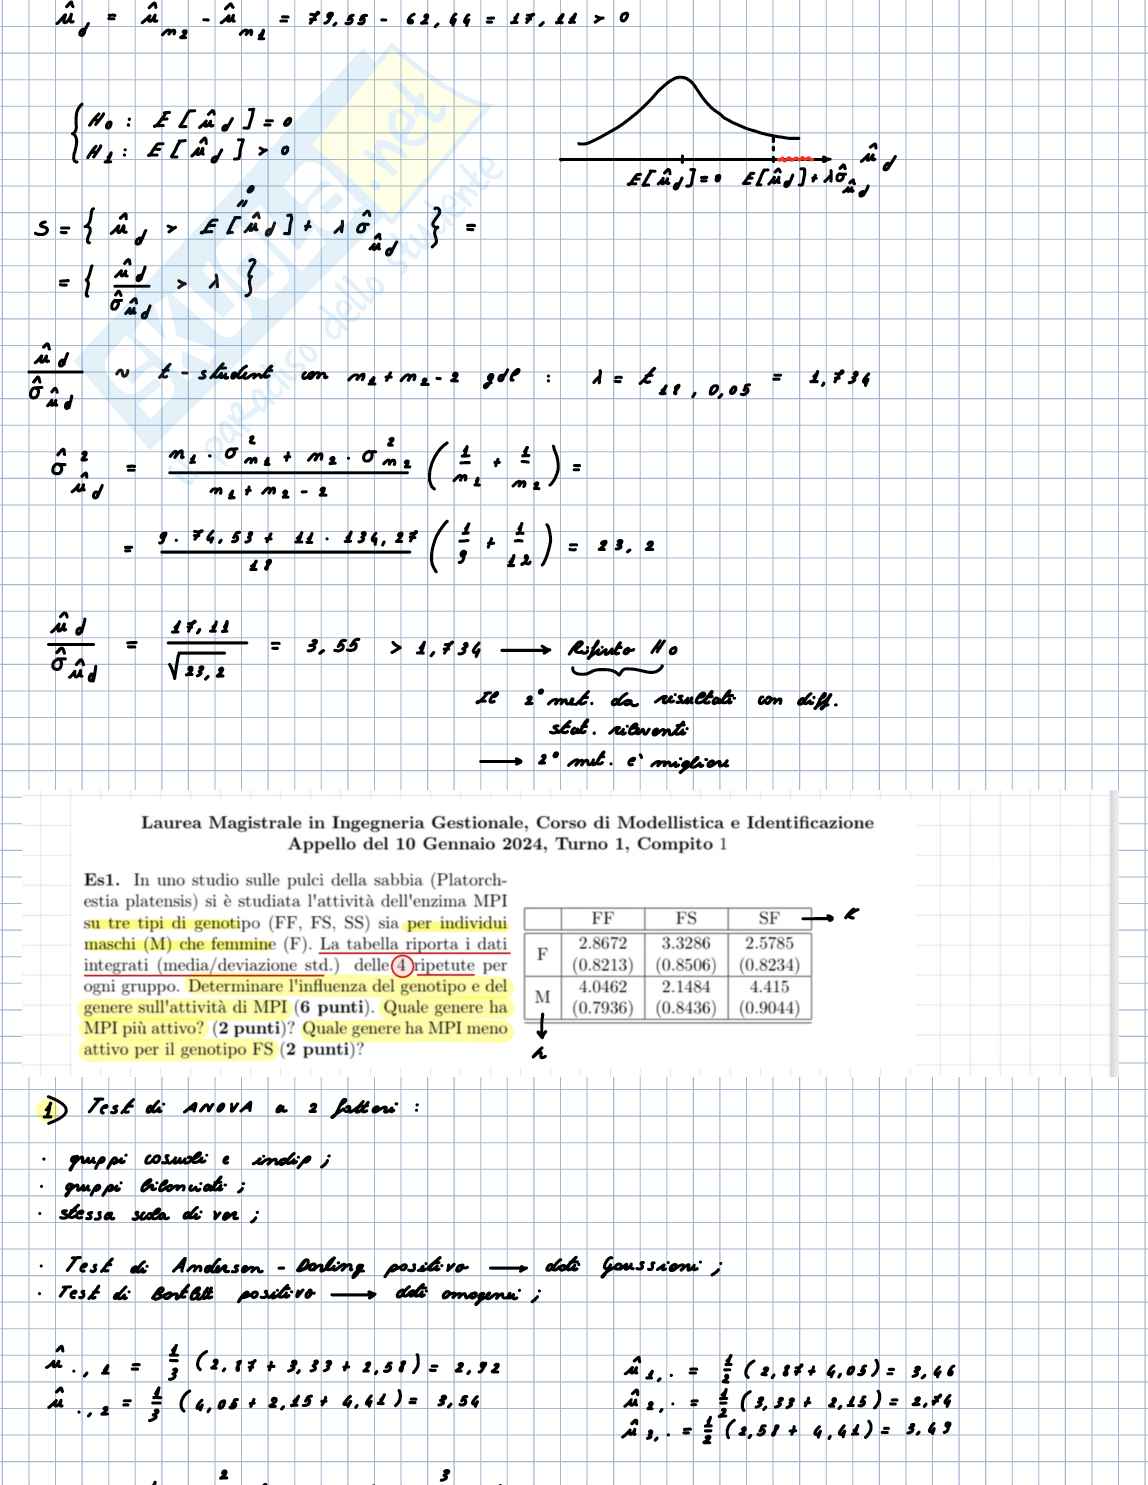 μ̂_d = μ̂_m2 - μ̂_m1 = 79,55 - 62,44 = 17,11 > 0
H0 : E[μ̂_d] = 0
H1 : E[μ̂_d] > 0
μ̂_d
E[μ̂_d] = 0 E[μ̂_d] + λσ̂_μ̂_d
S = { μ̂_d > E[μ̂_d] + λ σ̂_μ̂_d } =
= { μ̂_d / σ̂_μ̂_d > λ }
μ̂_d / σ̂_μ̂_d ~ t - student con m1 + m2 - 2 gdl : λ = t_18, 0,05 = 1,734
σ̂²_μ̂_d = (m1 · σ²_m1 + m2 · σ²_m2) / (m1 + m2 - 2) (1/m1 + 1/m2) =
= (9 · 74,53 + 11 · 134,27) / 18 (1/9 + 1/12) = 23,2
μ̂_d / σ̂_μ̂_d = 17,11 / √23,2 = 3,55 > 1,734 → Rifiuto H0
Il 2° met. da risultati con diff.
stat. rilevanti
→ 2° met. e' migliore
SKUOLA.net
il paradiso dello studente
Laurea Magistrale in Ingegneria Gestionale, Corso di Modellistica e Identificazione
Appello del 10 Gennaio 2024, Turno 1, Compito 1
Es1. In uno studio sulle pulci della sabbia (Platorch-
estia platensis) si è studiata l'attività dell'enzima MPI
su tre tipi di genotipo (FF, FS, SS) sia per individui
maschi (M) che femmine (F). La tabella riporta i dati
integrati (media/deviazione std.) delle 4 ripetute per
ogni gruppo. Determinare l'influenza del genotipo e del
genere sull'attività di MPI (6 punti). Quale genere ha
MPI più attivo? (2 punti)? Quale genere ha MPI meno
attivo per il genotipo FS (2 punti)?
FF FS SF → k
F 2.8672 3.3286 2.5785
(0.8213) (0.8506) (0.8234)
M 4.0462 2.1484 4.415
(0.7936) (0.8436) (0.9044)
h
1) Test di ANOVA a 2 fattori :
· gruppi casuali e indip ;
· gruppi bilanciati ;
· stessa scala di var ;
· Test di Anderson - Darling positivo → dati Gaussiani ;
· Test di Bartlett positivo → dati omogenei ;
μ̂.,1 = 1/3 (2,87 + 3,33 + 2,58) = 2,92
μ̂.,2 = 1/3 (4,05 + 2,15 + 4,41) = 3,54
μ̂1,. = 1/2 (2,87 + 4,05) = 3,46
μ̂2,. = 1/2 (3,33 + 2,15) = 2,74
μ̂3,. = 1/2 (2,58 + 4,41) = 3,49
2 3